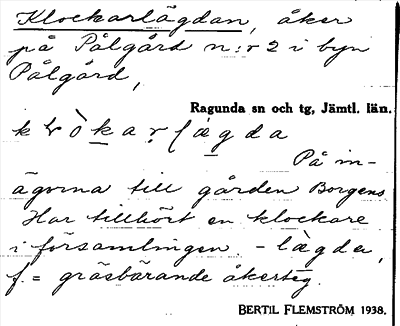 Klockarlägdan, åker
på Pålgård n:r 2 i byn
Pålgård,
Ragunda sn och tg, Jämtl. län.
På in-
ägorna till gården Borgens.
Har tillhört en klockare
i församlingen. - lägda,
f. = gräsbärande åkerteg.
BERTIL FLEMSTRÖM 1938.